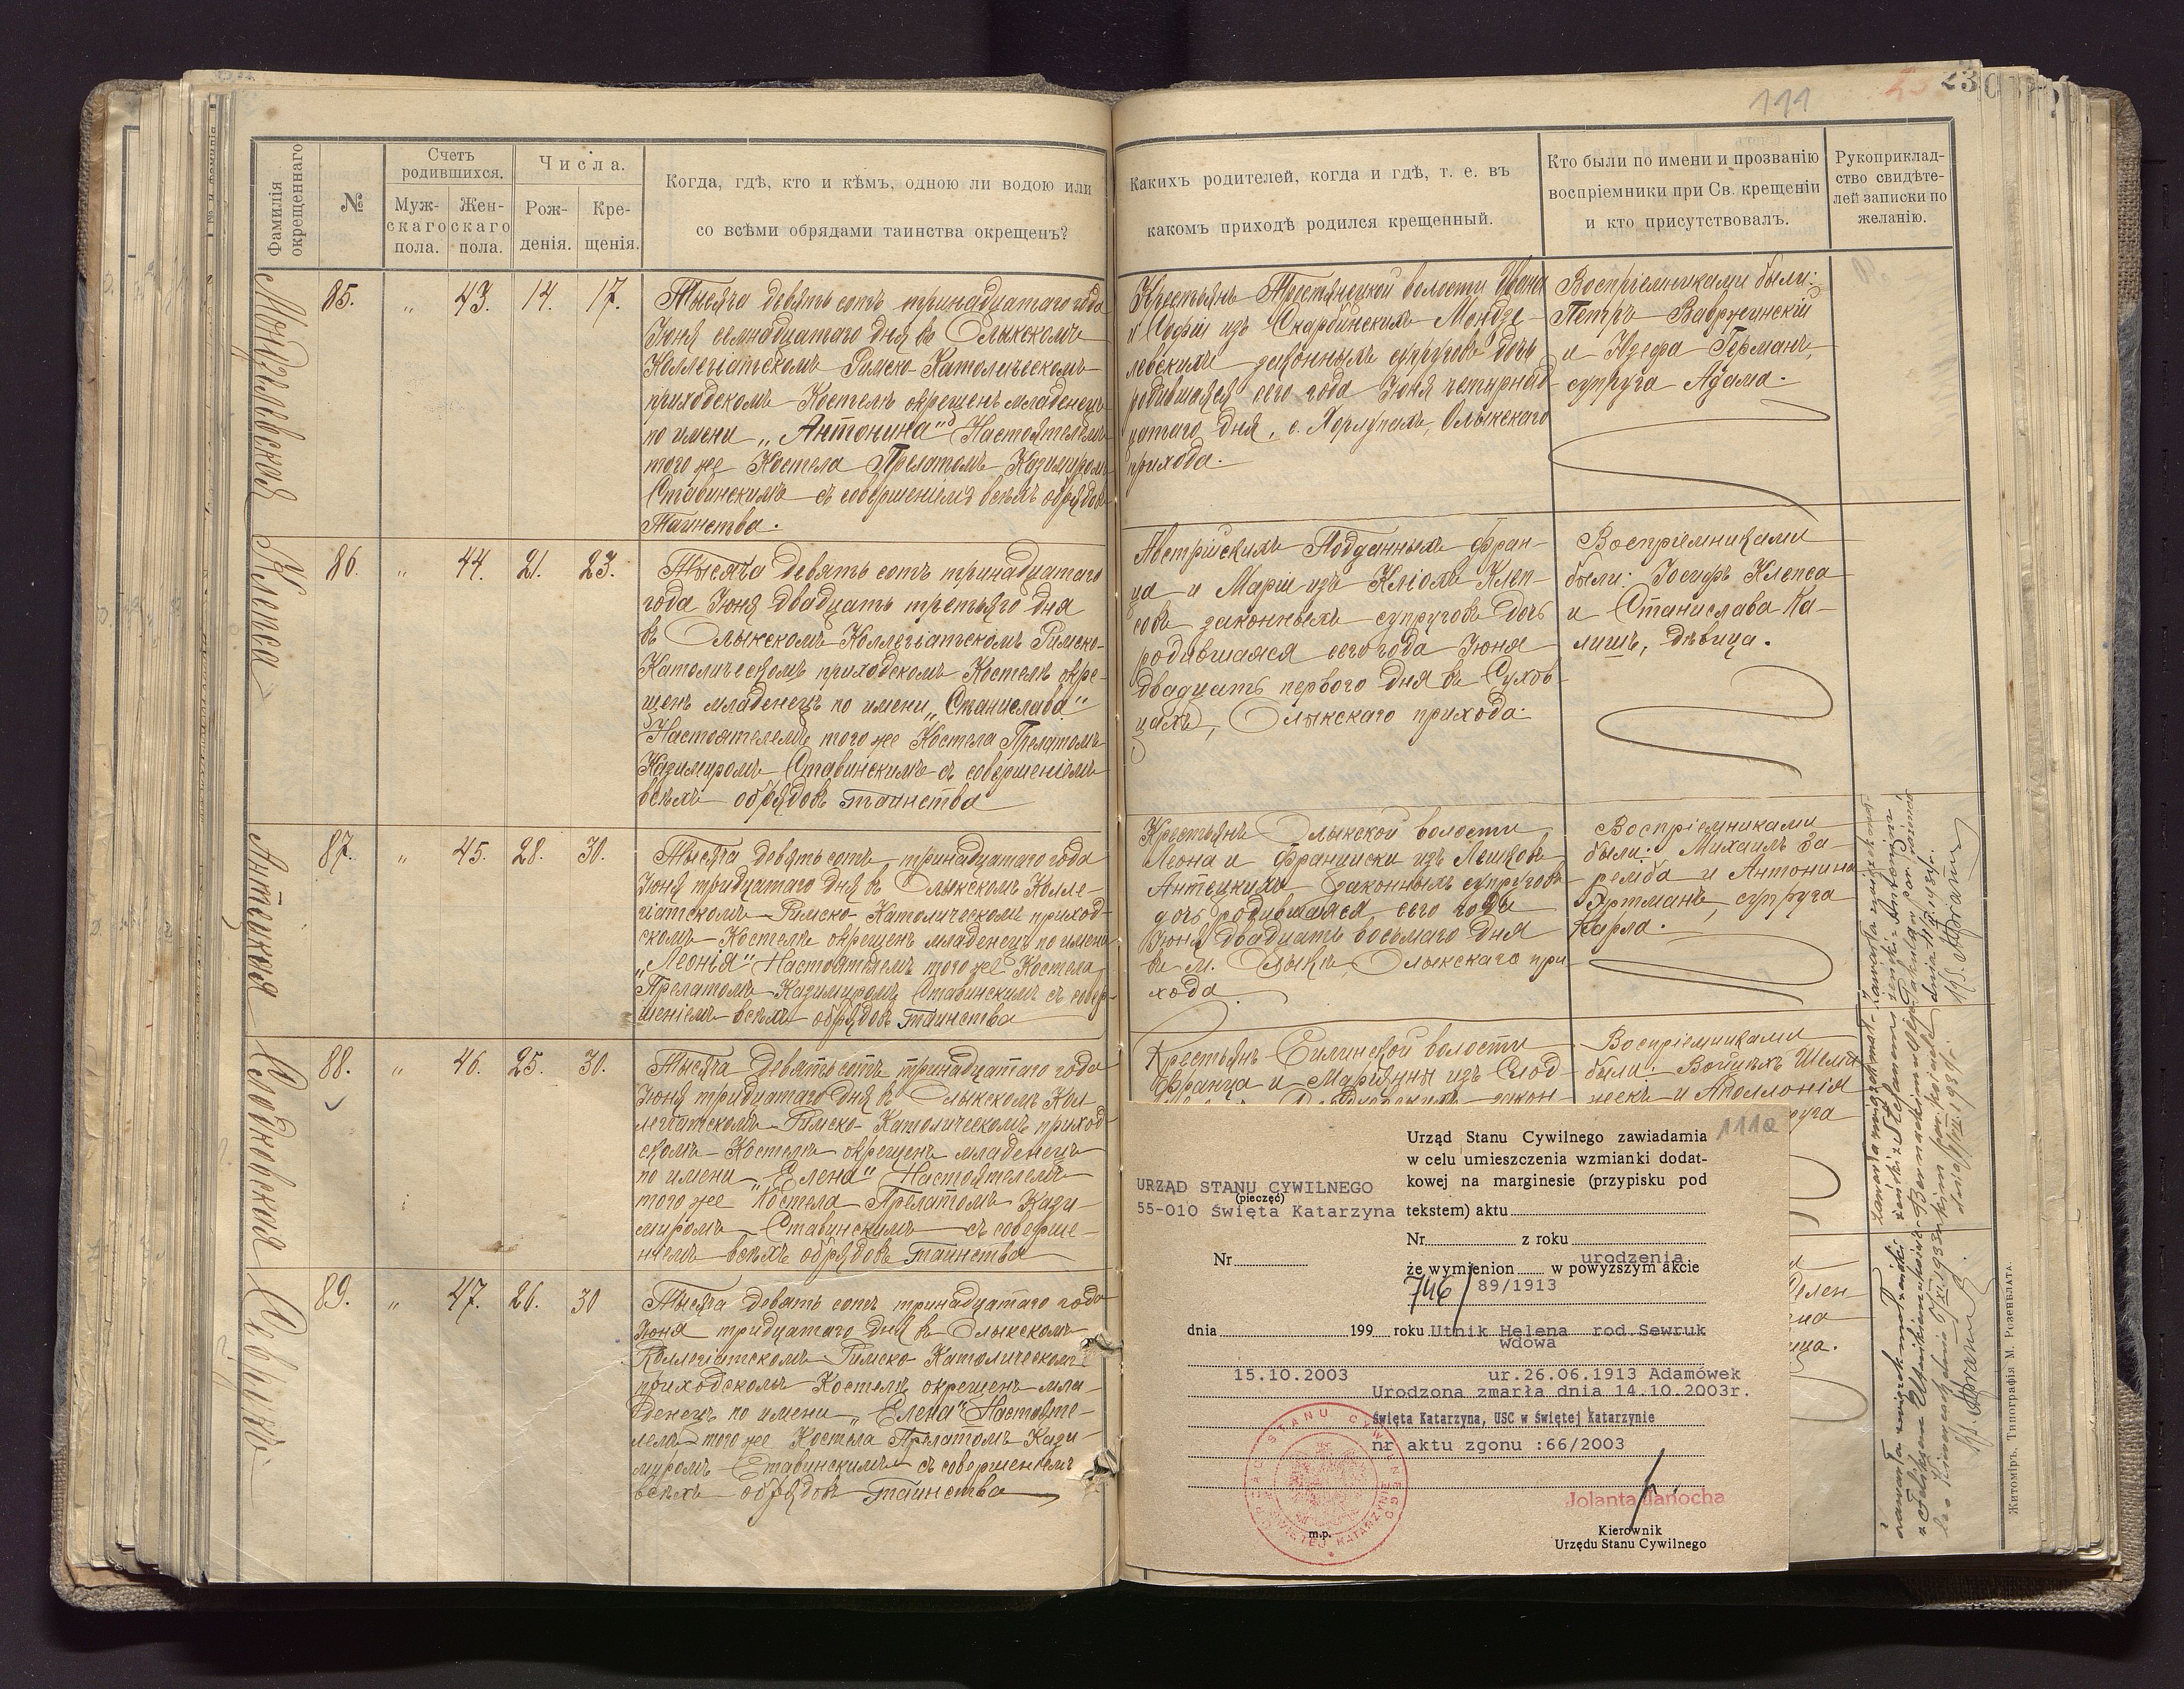 111
230
Фамилія окрещеннаго
№
Счетъ родившихся.
Муж-
скаго
пола.
Жен-
скаго
пола.
Числа.
Рож-
денія.
Кре-
щенія.
Когда, гдѣ, кто и кѣмъ, одною ли водою или
со всѣми обрядами таинства окрещенъ?
Какихъ родителей, когда и гдѣ, т. е. въ
какомъ приходѣ родился крещенный.
Кто были по имени и прозванію
воспріемники при Св. крещеніи
и кто присутствовалъ.
Рукоприклад-
ство свидѣте-
лей записки по
желанію.
Мондзелевская
85. " 43. 14. 17.
Тысяча девятьсотъ тринадцатаго года
Іюня семнадцатаго дня въ Олыкскомъ
Коллегіатскомъ Римско-Католическомъ
приходскомъ Костелѣ окрещенъ младенецъ
по имени „Антонина" Настоятелемъ
того же Костела Прелатомъ Казимиромъ
Ставинскимъ съ совершеніемъ всѣхъ обрядовъ
Таинства.
Крестьянъ Тростянецкой волости Ивана
и Софіи изъ Скарбинскихъ Мондзе-
левскихъ законныхъ супруговъ дочь
родившаяся сего года Іюня четырнад-
цатаго дня, с. Хорлупахъ, Олыкскаго
прихода.
Воспріемниками были:
Петръ Вавржинскій
и Юзефа Германъ,
супруга Адама.
Клепса
86. " 44. 21. 23.
Тысяча девятьсотъ тринадцатаго
года Іюня двадцать третьяго дня
въ Олыкскомъ Коллегіатскомъ Римско-
Католическомъ приходскомъ Костелѣ окре-
щенъ младенецъ по имени „Станислава"
Настоятелемъ того же Костела Прелатомъ
Казимиромъ Ставинскимъ съ совершеніемъ
всѣхъ обрядовъ таинства
Австрійскихъ Подданныхъ Фран-
ца и Маріи изъ Кліохъ Клеп-
совъ законныхъ супруговъ дочь
родившаяся сего года Іюня
двадцать перваго дня въ Сухов-
цахъ, Олыкскаго прихода.
Воспріемниками
были: Іосифъ Клепса
и Станислава Ка-
лишъ, дѣвица.
Антецкая
87. " 45. 28. 30.
Тысяча девятьсотъ тринадцатаго года
Іюня тридцатаго дня въ Олыкскомъ Колле-
гіатскомъ Римско-Католическомъ приход-
скомъ Костелѣ окрещенъ младенецъ по имени
„Леонія" Настоятелемъ того же Костела
Прелатомъ Казимиромъ Ставинскимъ съ совер-
шеніемъ всѣхъ обрядовъ таинства
Крестьянъ Олыкской волости
Леона и Франциски изъ Лешковъ
Антецкихъ законныхъ супруговъ
дочь родившаяся сего года
Іюня двадцать восьмаго дня
въ м. Олыкѣ, Олыкскаго при-
хода.
Воспріемниками
были: Михаилъ За-
ремба и Антонина
Эртманъ, супруга
Карла.
88. " 46. 25. 30.
Тысяча девятьсотъ тринадцатаго года
Іюня тридцатаго дня въ Олыкскомъ Кол-
легіатскомъ Римско-Католическомъ приход-
скомъ Костелѣ окрещенъ младенецъ
по имени „Елена" Настоятелемъ
того же Костела Прелатомъ Кази-
миромъ Ставинскимъ съ соверше-
ніемъ всѣхъ обрядовъ таинства
Крестьянъ Силинской волости
Франца и Маріянны изъ Слод-
Воспріемниками
были: Войцѣхъ
и Аполлонія
Севрукъ
89. " 47. 26. 30
Тысяча девятьсотъ тринадцатаго года
Іюня тридцатаго дня въ Олыкскомъ
Коллегіатскомъ Римско-Католическомъ
приходскомъ Костелѣ окрещенъ мла-
денецъ по имени „Елена" Настояте-
лемъ того же Костела Прелатомъ Кази-
миромъ Ставинскимъ съ совершеніемъ
всѣхъ обрядовъ таинства
111a
Urząd Stanu Cywilnego zawiadamia
w celu umieszczenia wzmianki dodat-
kowej na marginesie (przypisku pod
tekstem) aktu
URZĄD STANU CYWILNEGO
(pieczęć)
55-010 Święta Katarzyna
Nr z roku
Nr
urodzenia
że wymienion w powyższym akcie
746/ 89/1913
dnia 199 roku Utnik Helena rod.Sewruk
wdowa
15.10.2003 ur.26.06.1913 Adamówek
Urodzona zmarła dnia 14.10.2003r.
Święta Katarzyna, USC w Świętej Katarzynie
nr aktu zgonu :66/2003
Jolanta Janocha
m.p.
Kierownik
Urzędu Stanu Cywilnego
Житоміръ, Типографія М. Розенблата.